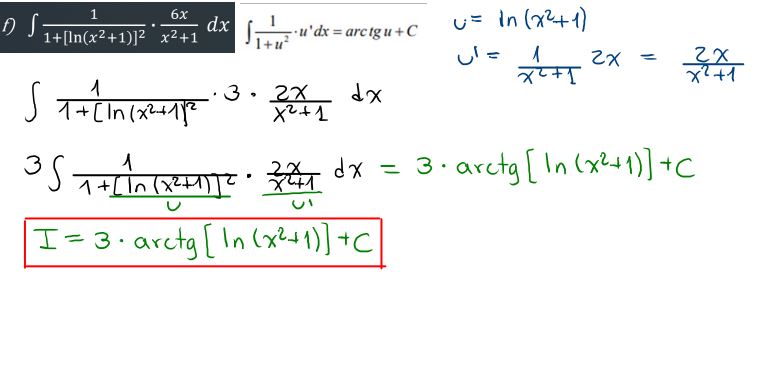 f) ∫ 1/(1+[ln(x²+1)]²) · 6x/(x²+1) dx
∫ 1/(1+u²) · u'dx = arctg u + C
u = ln(x²+1)
u' = 1/(x²+1) 2x = 2x/(x²+1)
∫ 1/(1+[ln(x²+1)]²) · 3 · 2x/(x²+1) dx
3 ∫ 1/(1+[ln(x²+1)]²) · 2x/(x²+1) dx = 3 · arctg[ln(x²+1)]+C
u u'
I = 3 · arctg[ln(x²+1)]+C